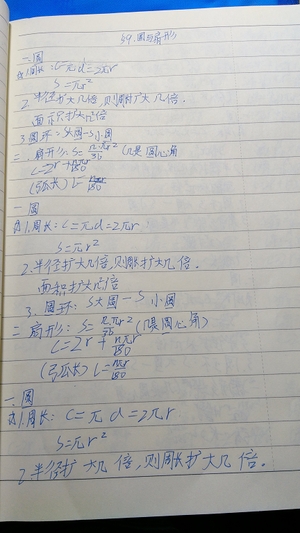 §9.圆与扇形
一.圆
1.周长:C=πd=2πr
S=πr²
2.半径扩大几倍,则周长扩大几倍.
面积扩大倍
3.圆环=S大圆-S小圆
二.扇形:S= (n是圆心角
C=2r+
(弧长) L=
一 圆
1.周长:C=πd=2πr
S=πr²
2.半径扩大几倍,则周长扩大几倍.
面积扩大倍
3.圆环:S大圆-S小圆
二 扇形:S= (n是圆心角)
C=2r+nπr/180
(弓瓜长) L=nπr/180
一.圆
1.周长:C=πd=2πr
S=πr²
2.半径扩大几倍,则周长扩大几倍.